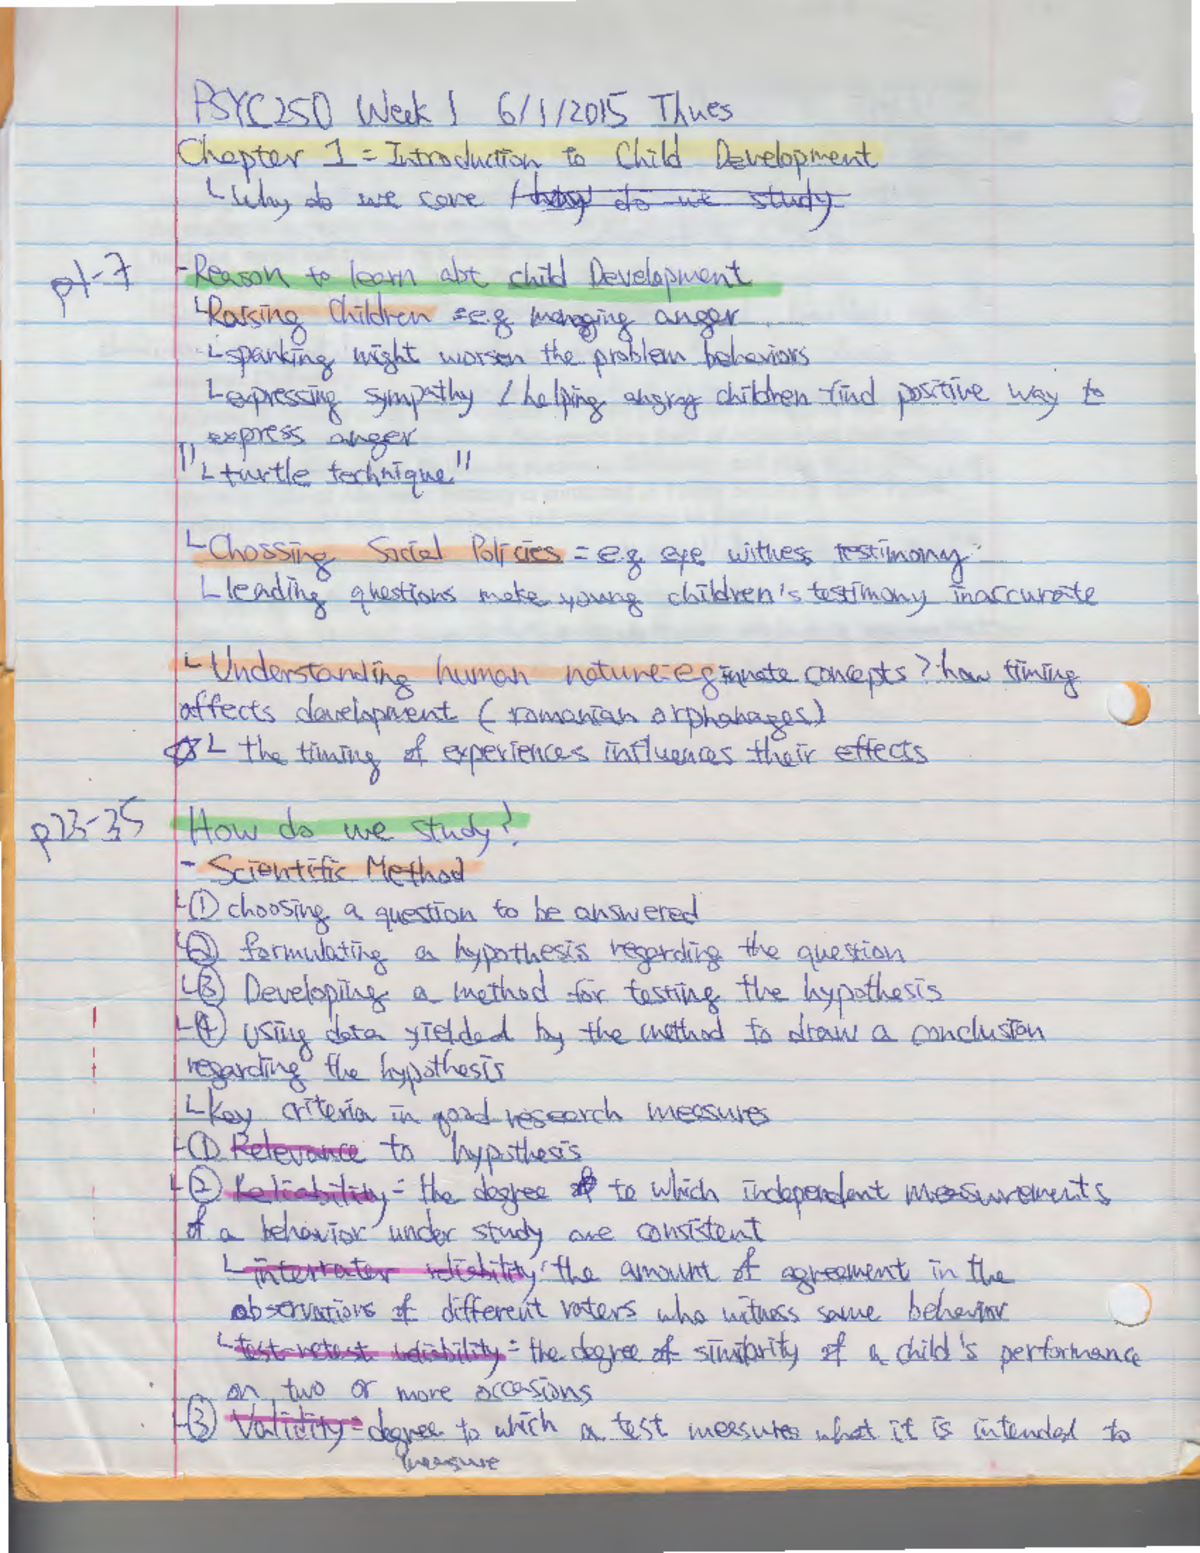 PSYC250 Week 1 6/1/2015 Thues
Chapter 1 = Introduction to Child Development
└ Why do we care / how do we study
p1-7
- Reason to learn abt child Development
└ Raising Children = e.g managing anger
└ spanking might worsen the problem behaviors
└ expressing sympathy / helping angry children find positive way to
express anger
"└ turtle technique"
└ Chossing Social Policies = e.g. eye witness testimony
└ leading questions make young children's testimony inaccurate
└ Understanding human nature = eg innate concepts? how timing
affects development (romanian orphanages)
└ the timing of experiences influences their effects
p23-35
How do we study?
- Scientific Method
└ ① choosing a question to be answered
└ ② formulating a hypothesis regarding the question
└ ③ Developing a method for testing the hypothesis
└ ④ using data yielded by the method to draw a conclusion
regarding the hypothesis
└ Key criteria in good research measures
└ ① Relevance to hypothesis
└ ② Reliability = the degree to which independent measurements
of a behavior under study are consistent
└ interrater reliability: the amount of agreement in the
observations of different raters who witness same behavior
└ test-retest reliability = the degree of similarity of a child's performance
on two or more occasions
└ ③ Validity = degree to which a test measures what it is intended to
measure